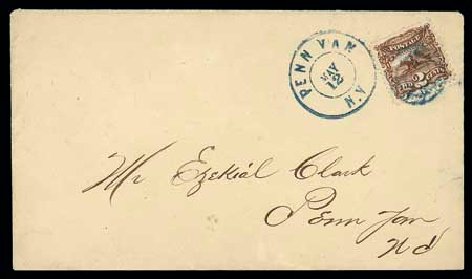 PENN YAN
MAY
12
N.Y.
POSTAGE
Mr Ezekiel Clark
Penn Yan